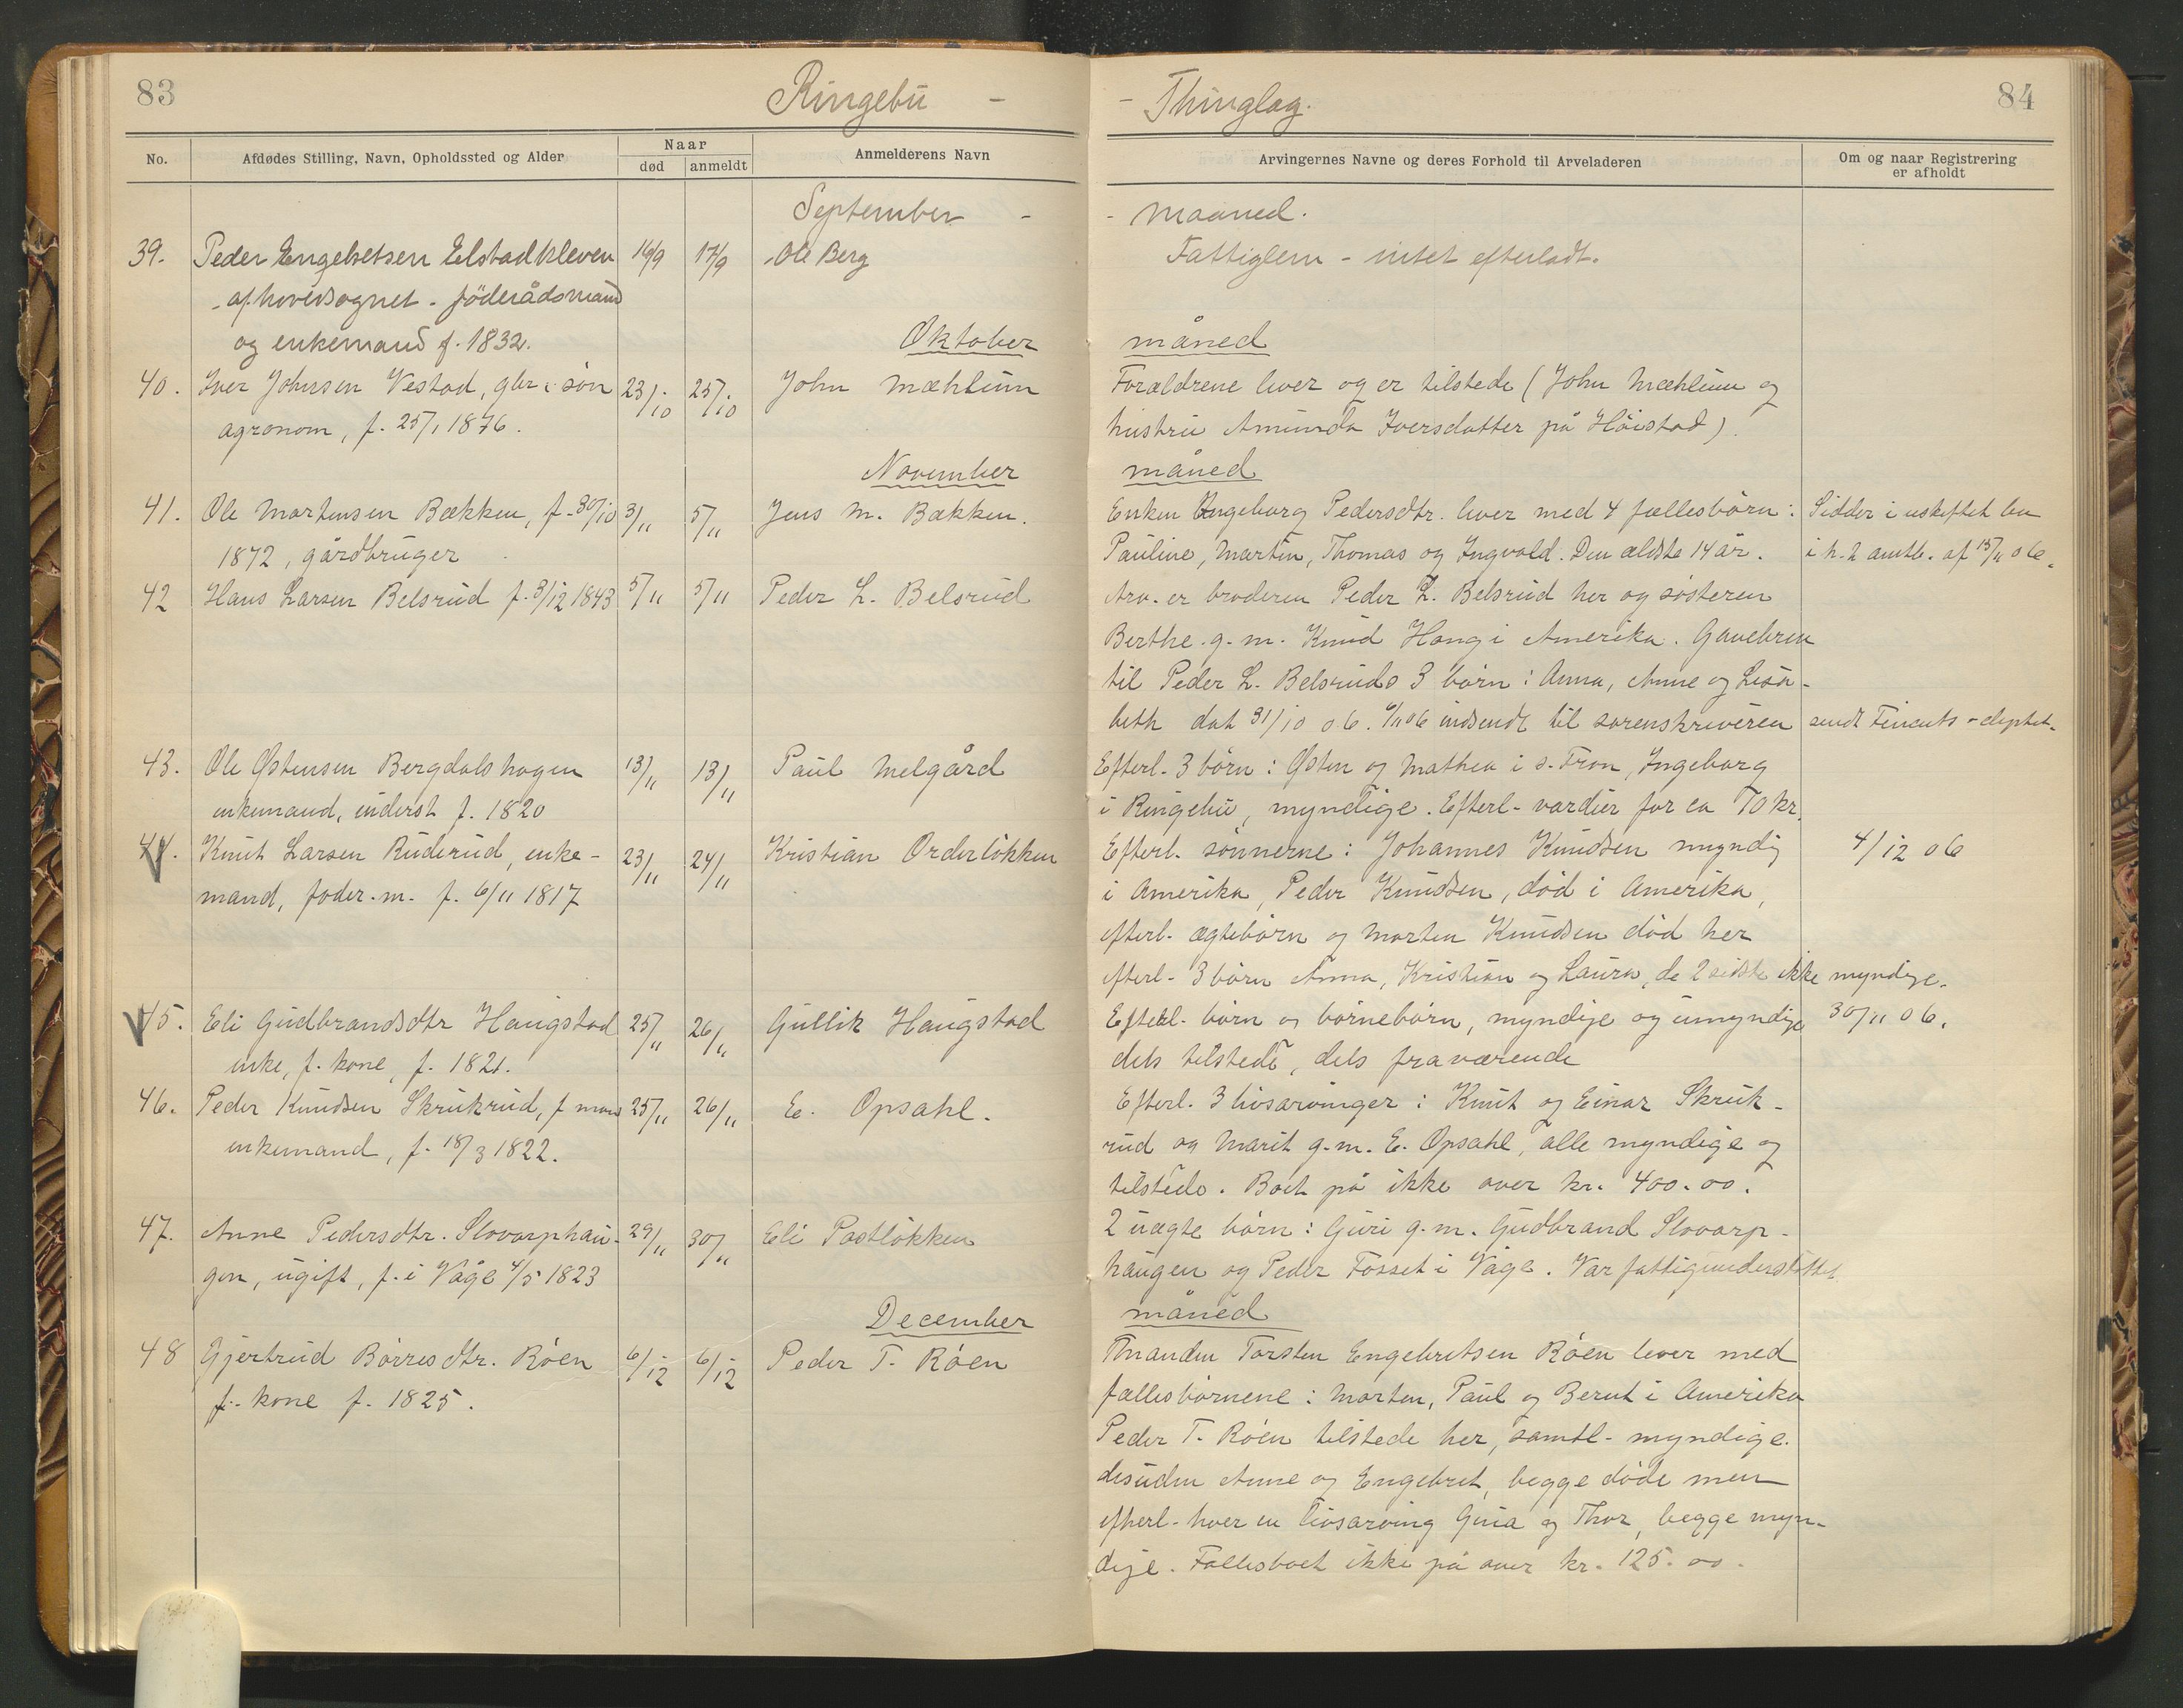 83
Ringebu -
No.
Afdødes Stilling, Navn, Opholdssted og Alder
Naar
død
anmeldt
Anmelderens Navn
September -
39. Peder Engebretsen Elstadkleven 16/9 17/9 Ole Berg
af hovedsognet - föderådsmand
og enkemand f. 1832.
Oktober
40. Iver Johnsen Vestad, gbr. søn 23/10 25/10 John Mæhlum
agronom, f. 25/1 1876.
November
41. Ole Martensen Bækken, f. 30/10 3/11 5/11 Jens M. Bækken.
1872, gårdbruger
42 Hans Larsen Belsrud f. 3/12 1843 5/11 5/11 Peder L. Belsrud
43. Ole Østensen Bergdalshagen 13/11 13/11 Paul Melgård
enkemand, inderst f. 1820
44. Knut Larsen Ruderud, enke- 23/11 24/11 Kristian Orderløkken
mand, foder.m. f. 6/11 1817
45. Eli Gudbrandsdtr Haugstad 25/11 26/11 Gullik Haugstad
enke, f. kone, f. 1821.
46. Peder Knudsen Skrukrud, f mand 25/11 26/11 E. Opsahl.
enkemand, f. 18/3 1822.
47. Anne Pedersdtr. Slovarphau- 29/11 30/11 Eli Pastløkken
gen, ugift, f. i Våge 4/5 1823
December
48 Gjertrud Børresdtr. Røen 6/12 6/12 Peder T. Røen
f. kone f. 1825.
84
- Thinglag.
Arvingernes Navne og deres Forhold til Arveladeren
Om og naar Registrering
er afholdt
- Maaned.
Fattiglem - intet efterladt.
måned
Forældrene lever og er tilstede (John Mæhlum og
hustru Amunda Iversdatter på Høistad).
måned
Enken Ingeborg Pedersdtr. lever med 4 fællesbørn: Sidder i uskiftet bo
Pauline, Martin, Thomas og Ingvald. Den ældste 14 år. i h. t. amtb. af 15/11 06.
Arv. er broderen Peder L. Belsrud her og søsteren
Berthe g.m. Knud Haug i Amerika. Gavebrev
til Peder L. Belsruds 3 børn: Anna, Anne og Lisa-
beth dat 31/10 06. 6/11 06 indsendt til sorenskriveren sendt Finants-deptet.
Efterl. 3 børn: Østen og Mathea i s. Fron, Ingeborg
i Ringebu, myndige. Efterl. værdier for ca 70 kr.
Efterl. sønnerne: Johannes Knudsen myndig 4/12 06
i Amerika, Peder Knudsen, død i Amerika,
efterl. ægtebørn og Morten Knudsen død her
efterl. 3 børn Anna, Kristian og Laura, de 2 sidste ikke myndige.
Efterl. børn og børnebørn, myndige og umyndige 30/11 06.
dels tilstede, dels fraværende
Efterl. 3 livsarvinger: Knut og Einar Skruk-
rud og Marit g.m. E. Opsahl, alle myndige og
tilstede. Boet på ikke over kr. 400.00.
2 uægte børn: Guri g.m. Gudbrand Slovarp-
haugen og Peder Fosset i Våge. Var fattigunderstøttet
måned
Manden Torsten Engebretsen Røen lever med
fællesbørnene: Morten, Paul og Bernt i Amerika
Peder T. Røen tilstede her, samtl. myndige.
desuden Anne og Engebret, begge døde men
efterl. hver en livsarving Guia og Thor, begge myn-
dige. Fællesboet ikke på over kr. 125.00.